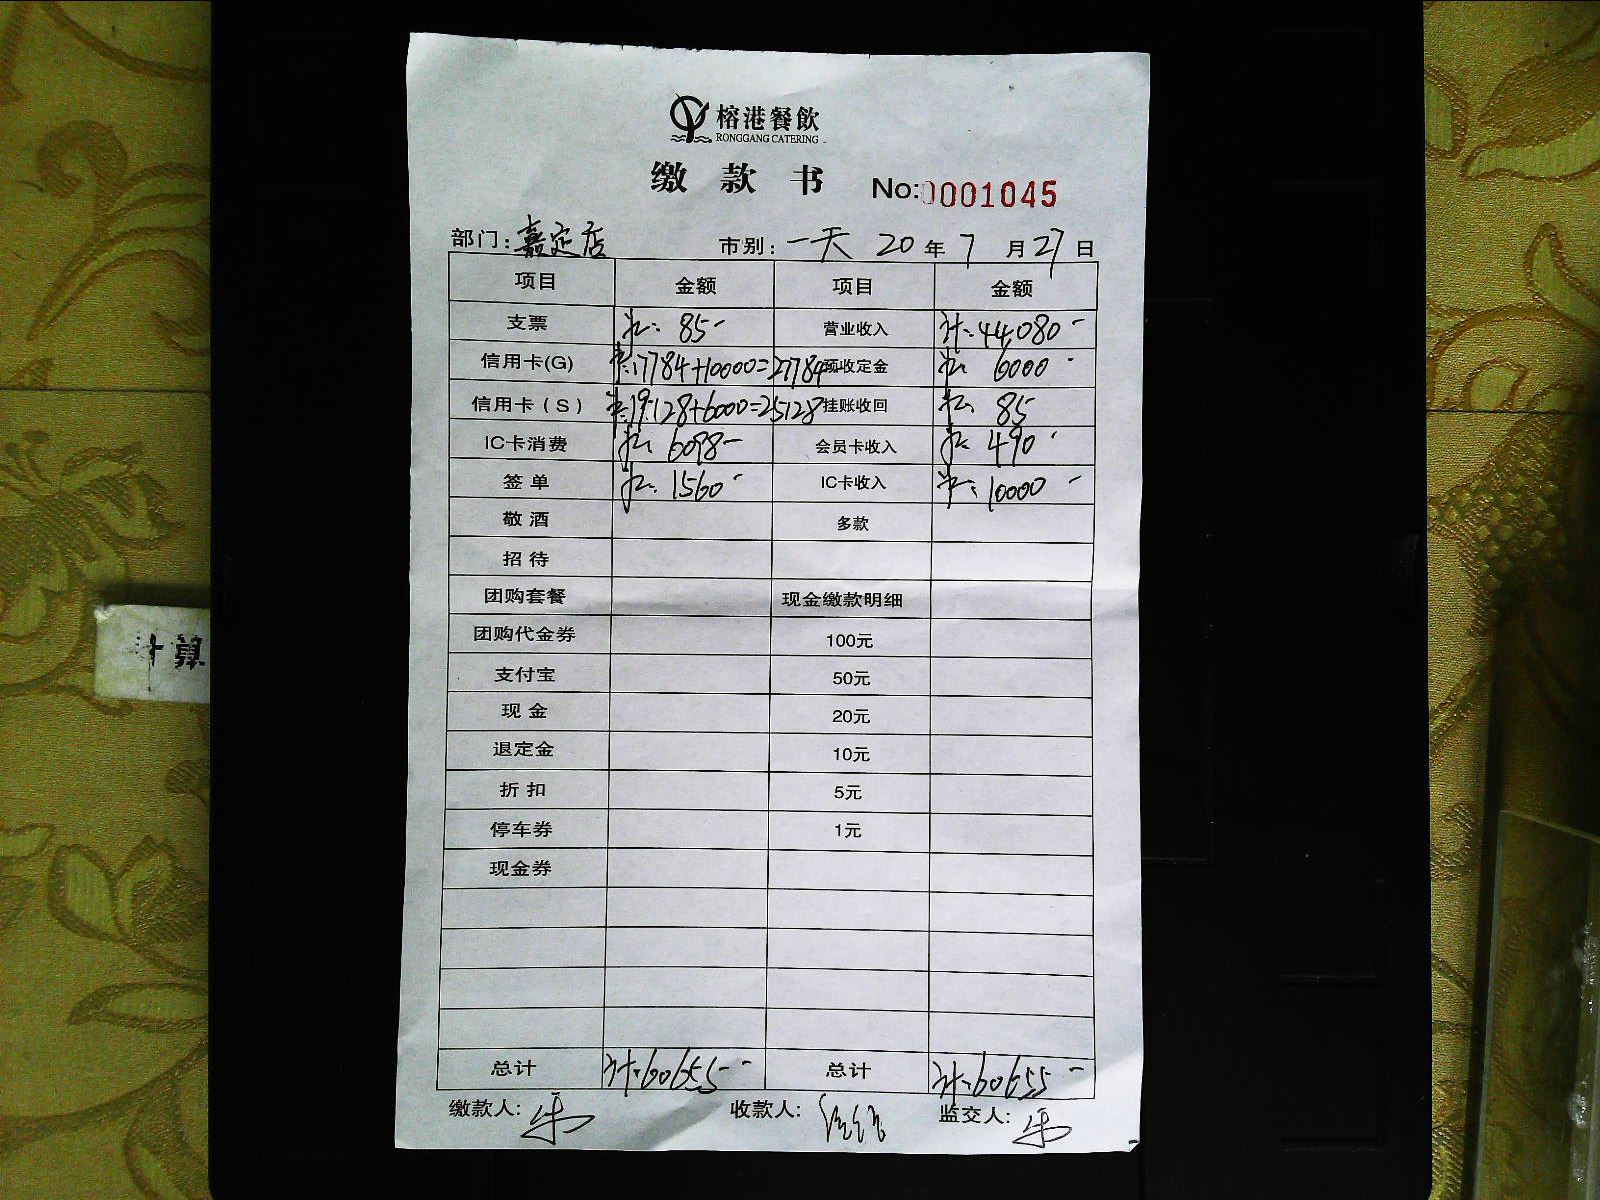 榕港餐飲
RONGGANG CATERING
缴款书 No:0001045
部门:嘉定店 市别:一天 20年7月27日
项目 金额 项目 金额
支票 计: 85- 营业收入 计: 44,080-
信用卡(G) 计:17784+10000=27784 预收定金 计: 6000-
信用卡(S) 计:19:128+6000=25128 挂账收回 计: 85
IC卡消费 计: 6098- 会员卡收入 计: 490-
签单 计: 1560- IC卡收入 计: 10000-
敬酒 多款
招待
团购套餐 现金缴款明细
团购代金券 100元
支付宝 50元
现金 20元
退定金 10元
折扣 5元
停车券 1元
现金券
总计 计:60655- 总计 计:60655-
缴款人:朱 收款人: 监交人:朱
计算